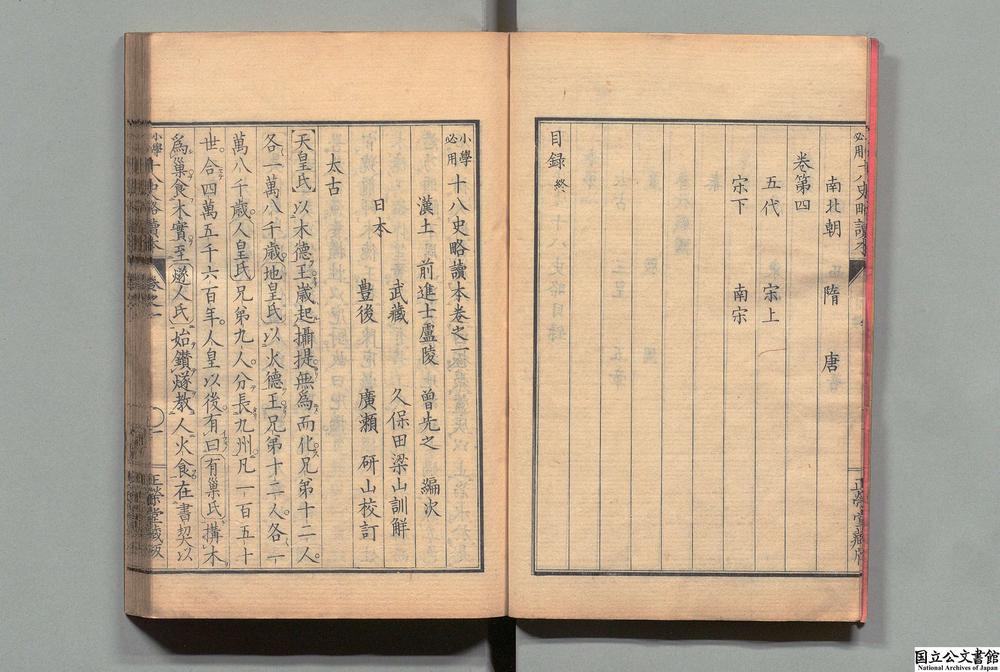 必用十八史略讀本
南北朝 隋 唐
卷第四
五代 宋上
宋下 南宋
目録 終
正榮堂藏版
小學必用 十八史略讀本卷之一
漢土 前進士盧陵 曾先之 編次
日本 武藏 久保田梁山訓解
豊後 廣瀬 研山校訂
太古
天皇氏以木德王歳起攝提無爲而化兄弟十二人
各一萬八千歳地皇氏以火德王兄弟十二人各一
萬八千歳人皇氏兄弟九人分長九州凡一百五十
世合四萬五千六百年人皇以後有曰有巢氏搆木
爲巢食木實至燧人氏始鑽燧敎人火食在書契以
小學
十八史略讀本
卷之一
一
正榮堂藏版
国立公文書館
National Archives of Japan